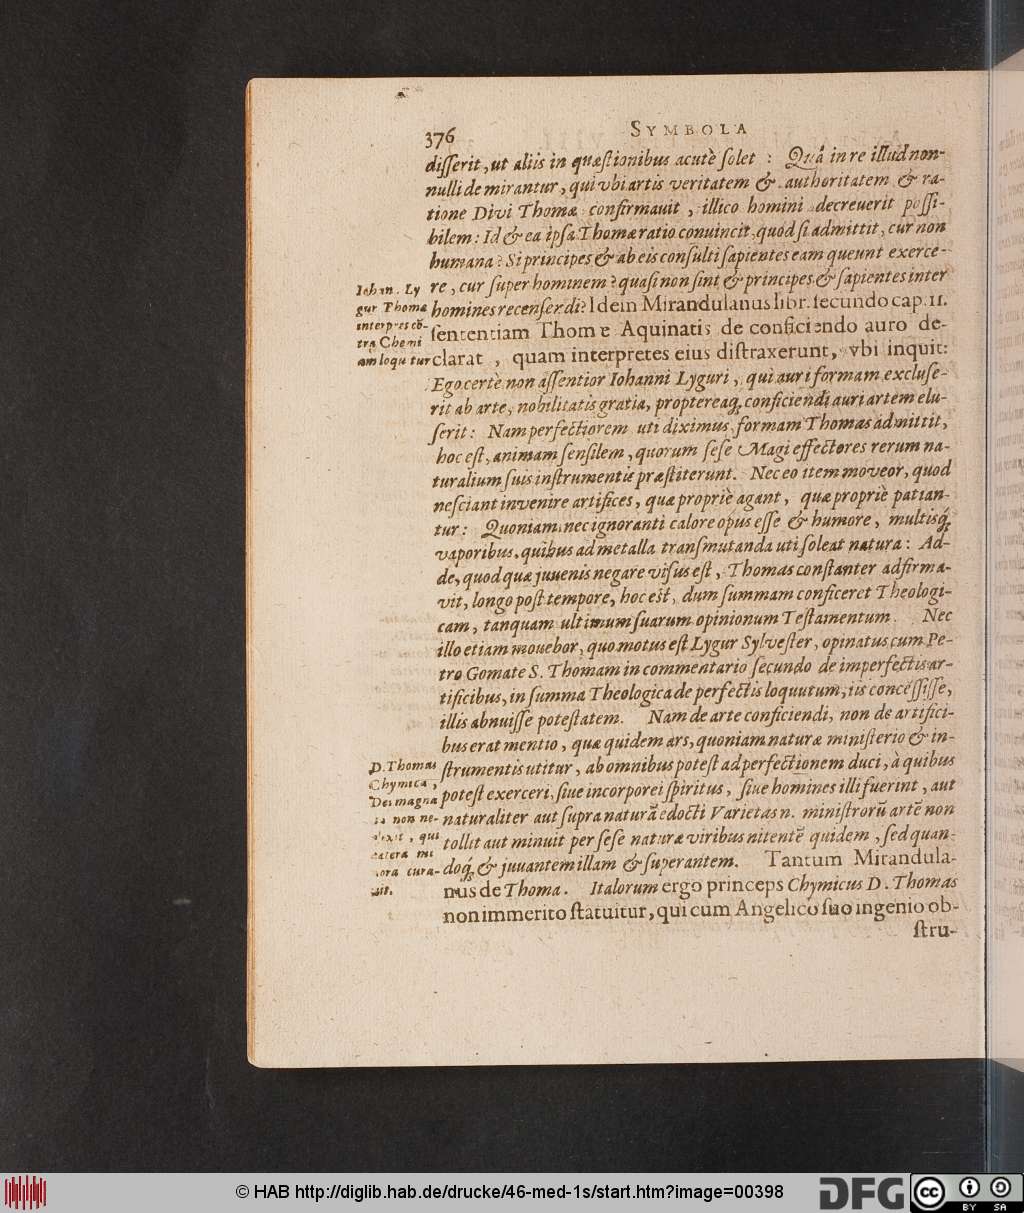 376
SYMBOLA
disserit, ut aliis in quæstionibus acutè solet : Quâ in re illud non-
nulli de mirantur, qui vbi artis veritatem & authoritatem & ra-
tione Divi Thomæ confirmauit, illico homini decreuerit possi-
bilem: Id & ea ipsa Thomæ ratio conuincit, quod si admittit, cur non
humana? Si principes & ab eis consulti sapientes eam queunt exerce-
re, cur super hominem? quasi non sint & principes & sapientes inter
homines recensendi? Idem Mirandulanus libr. secundo cap. 11.
sententiam Thome Aquinatis de conficiendo auro de-
clarat, quam interpretes eius distraxerunt, vbi inquit:
Ego certè non assentior Iohanni Lyguri, qui auri formam excluse-
rit ab arte, nobilitatis gratia, propterea q; conficiendi auri artem elu-
serit: Nam perfectiorem uti diximus, formam Thomas admittit,
hoc est, animam sensilem, quorum sese Magi effectores rerum na-
turalium suis instrumentis præstiterunt. Nec eo item moveor, quod
nesciant invenire artifices, quæ propriè agant, quæ propriè patian-
tur: Quoniam nec ignoranti calore opus esse & humore, multisq;
vaporibus, quibus ad metalla transmutanda uti soleat natura: Ad-
de, quod quæ juuenis negare visus est, Thomas constanter adfirma-
vit, longo post tempore, hoc est, dum summam conficeret Theologi-
cam, tanquam ultimum suarum opinionum Testamentum. Nec
illo etiam mouebor, quo motus est Lygur Sylvester, opinatus cum Pe-
tro Gomate S. Thomam in commentario secundo de imperfectis ar-
tificibus, in summa Theologica de perfectis loquutum, iis concessisse,
illis abnuisse potestatem. Nam de arte conficiendi, non de artifici-
bus erat mentio, quæ quidem ars, quoniam naturæ ministerio & in-
strumentis utitur, ab omnibus potest ad perfectionem duci, à quibus
potest exerceri, siue incorporei spiritus, siue homines illi fuerint, aut
naturaliter aut supra naturã edocti Varietas n. ministrorũ artẽ non
tollit aut minuit per sese naturæ viribus nitentẽ quidem, sed quan-
doq; & juuantem illam & superantem. Tantum Mirandula-
nus de Thoma. Italorum ergo princeps Chymicus D. Thomas
non immerito statuitur, qui cum Angelico suo ingenio ob-
stru-
Iohan. Ly
gur Thomæ
interpres cõ-
tra Chemi
am loquutur
D. Thomas
Chymica,
Dei magna
non ne-
qui
mi
cura-
vit.
© HAB http://diglib.hab.de/drucke/46-med-1s/start.htm?image=00398
DFG
cc
BY SA